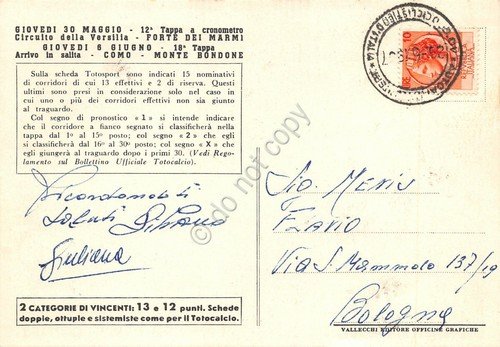 GIOVEDI 30 MAGGIO - 12ª Tappa a cronometro
Circuito della Versilia - FORTE DEI MARMI
GIOVEDI 6 GIUGNO - 18ª Tappa
Arrivo in salita - COMO - MONTE BONDONE
Sulla scheda Totosport sono indicati 15 nominativi
di corridori di cui 13 effettivi e 2 di riserva. Questi
ultimi sono presi in considerazione solo nel caso in
cui uno o più dei corridori effettivi non sia giunto
al traguardo.
Col segno di pronostico «1» si intende indicare
che il corridore a fianco segnato si classificherà nella
tappa dal 1° al 15° posto; col segno «2» che egli
si classificherà dal 16° al 30° posto; col segno «X» che
egli giungerà al traguardo dopo i primi 30. (Vedi Rego-
lamento sul Bollettino Ufficiale Totocalcio).
Ricordandoti
saluti Silvano
Giuliana
2 CATEGORIE DI VINCENTI: 13 e 12 punti. Schede
doppie, ottuple e sistemiste come per il Totocalcio.
Sig. Menis
Flavio
Via S. Mammolo 137/19
Bologna
VALLECCHI EDITORE OFFICINE GRAFICHE
do not copy